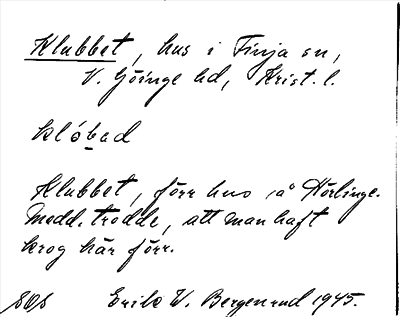 Klubbet, hus i Finja sn,
V. Göinge hd, Krist. l.
klóbad
Klubbet, förr hus på Hörlinge.
Medd. trodde, att man haft
krog här förr.
SOs Erik W. Bergenrud 1945.